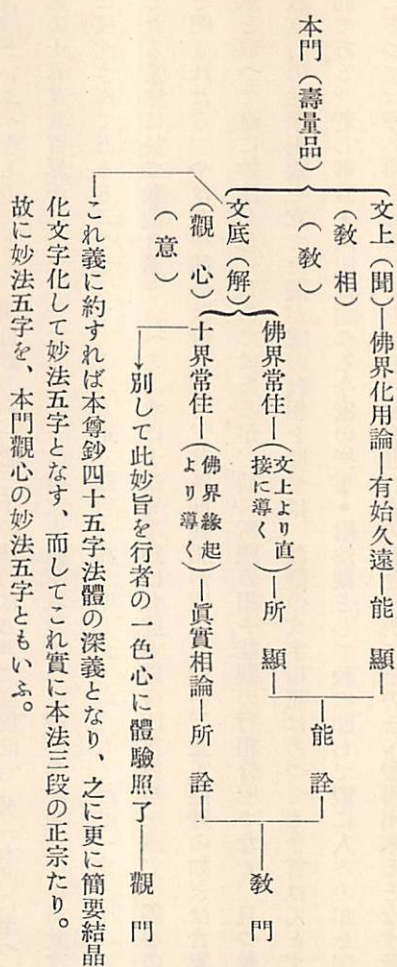 本門（壽量品）
文上（聞）―佛界化用論―有始久遠―能顯
（敎相）
（敎）
文底（解）
（觀心）
（意）
佛界常住―（文上より直接に導く）―所顯
十界常住―（佛界緣起より導く）―眞實相論―所詮
能詮
敎門
別して此妙旨を行者の一色心に體驗照了――觀門
これ義に約すれば本尊鈔四十五字法體の深義となり、之に更に簡要結晶
化文字化して妙法五字となす、而してこれ實に本法三段の正宗たり。
故に妙法五字を、本門觀心の妙法五字ともいふ。